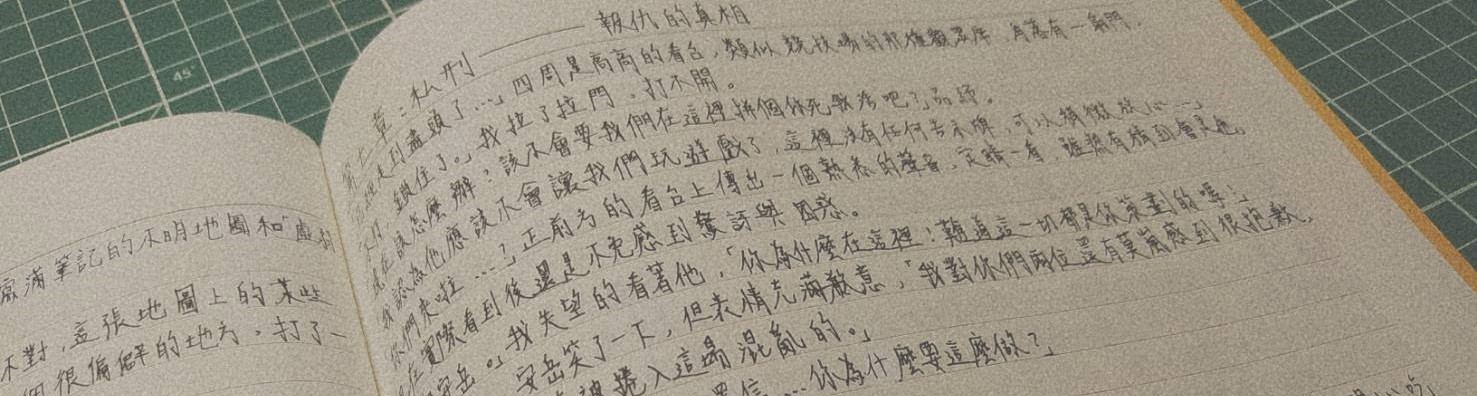 寫滿筆記的不明地圖和「虛
不對，這張地圖上的某些
很偏僻的地方，打了一
第七章：私刑——報仇的真相
走到盡頭了…，四周是高高的看台，類似競技場的那種觀眾席，有一扇門，
鎖住了。」我拉了拉門，打不開。
現在該怎麼辦？該不會要我們在這裡拼個你死我活吧？
我認為他應該不會讓我們玩遊戲了，這裡沒有任何告示牌，可以稍微放心…」
你們來啦…？」正前方的看台上傳出一個熟悉的聲音，定睛一看，雖然有猜到會是他，
在實際看到後還是不免感到驚訝與困惑。
安岳。」我失望的看著他，「你為什麼在這裡！難道這一切都是你策劃的嗎！」
安岳笑了一下，但表情充滿歉意，「我對你們兩位還有莫萬感到很抱歉，
被捲入這場混亂的。」
…你為什麼要這麼做？」